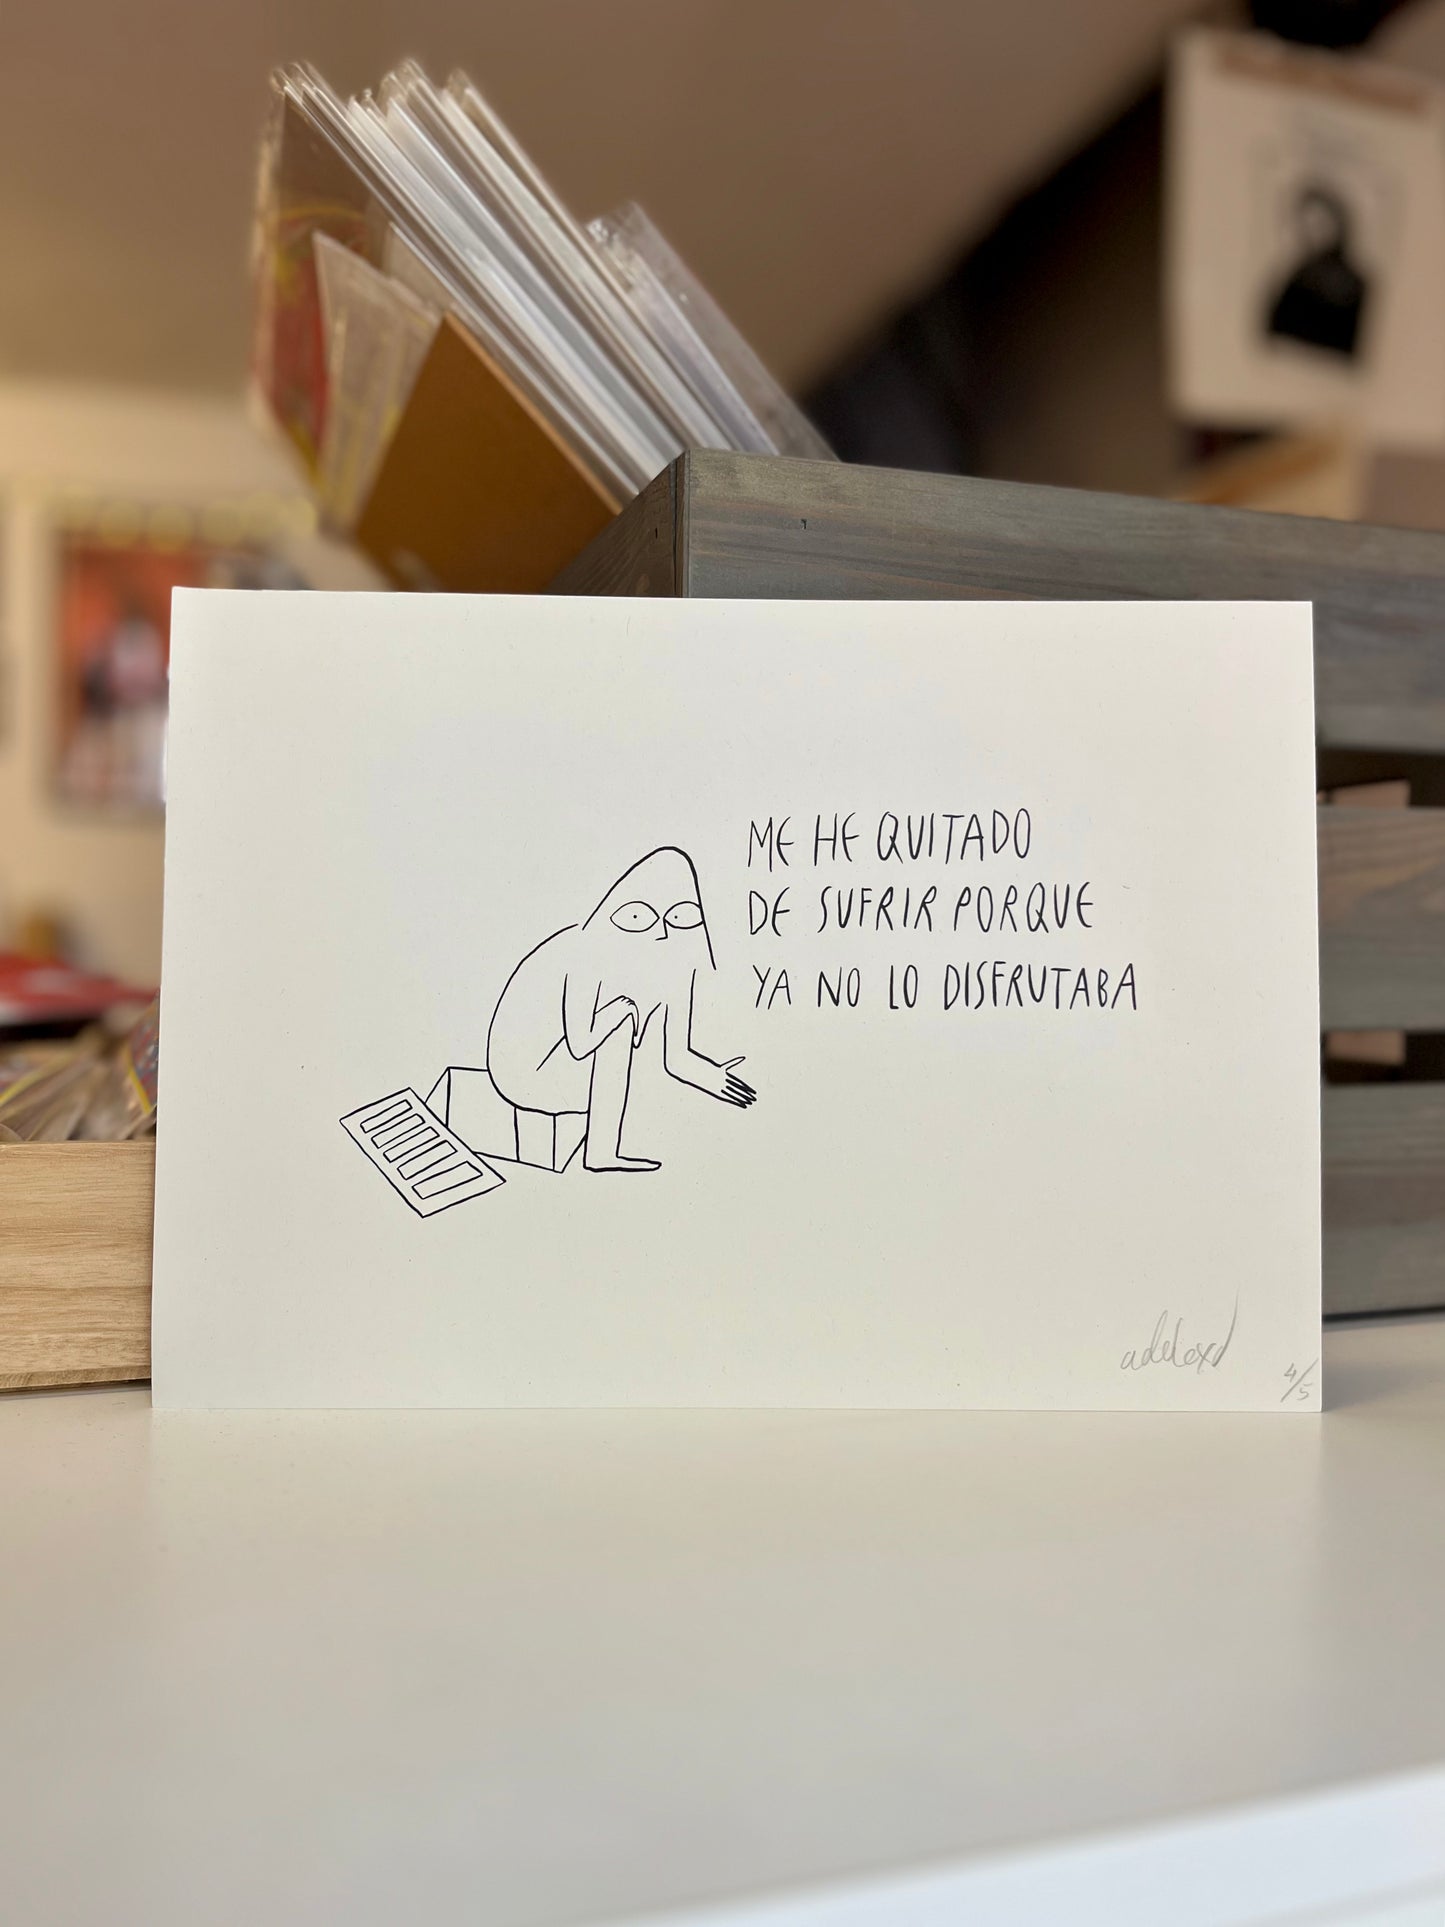 ME HE QUITADO
DE SUFRIR PORQUE
YA NO LO DISFRUTABA
4/5